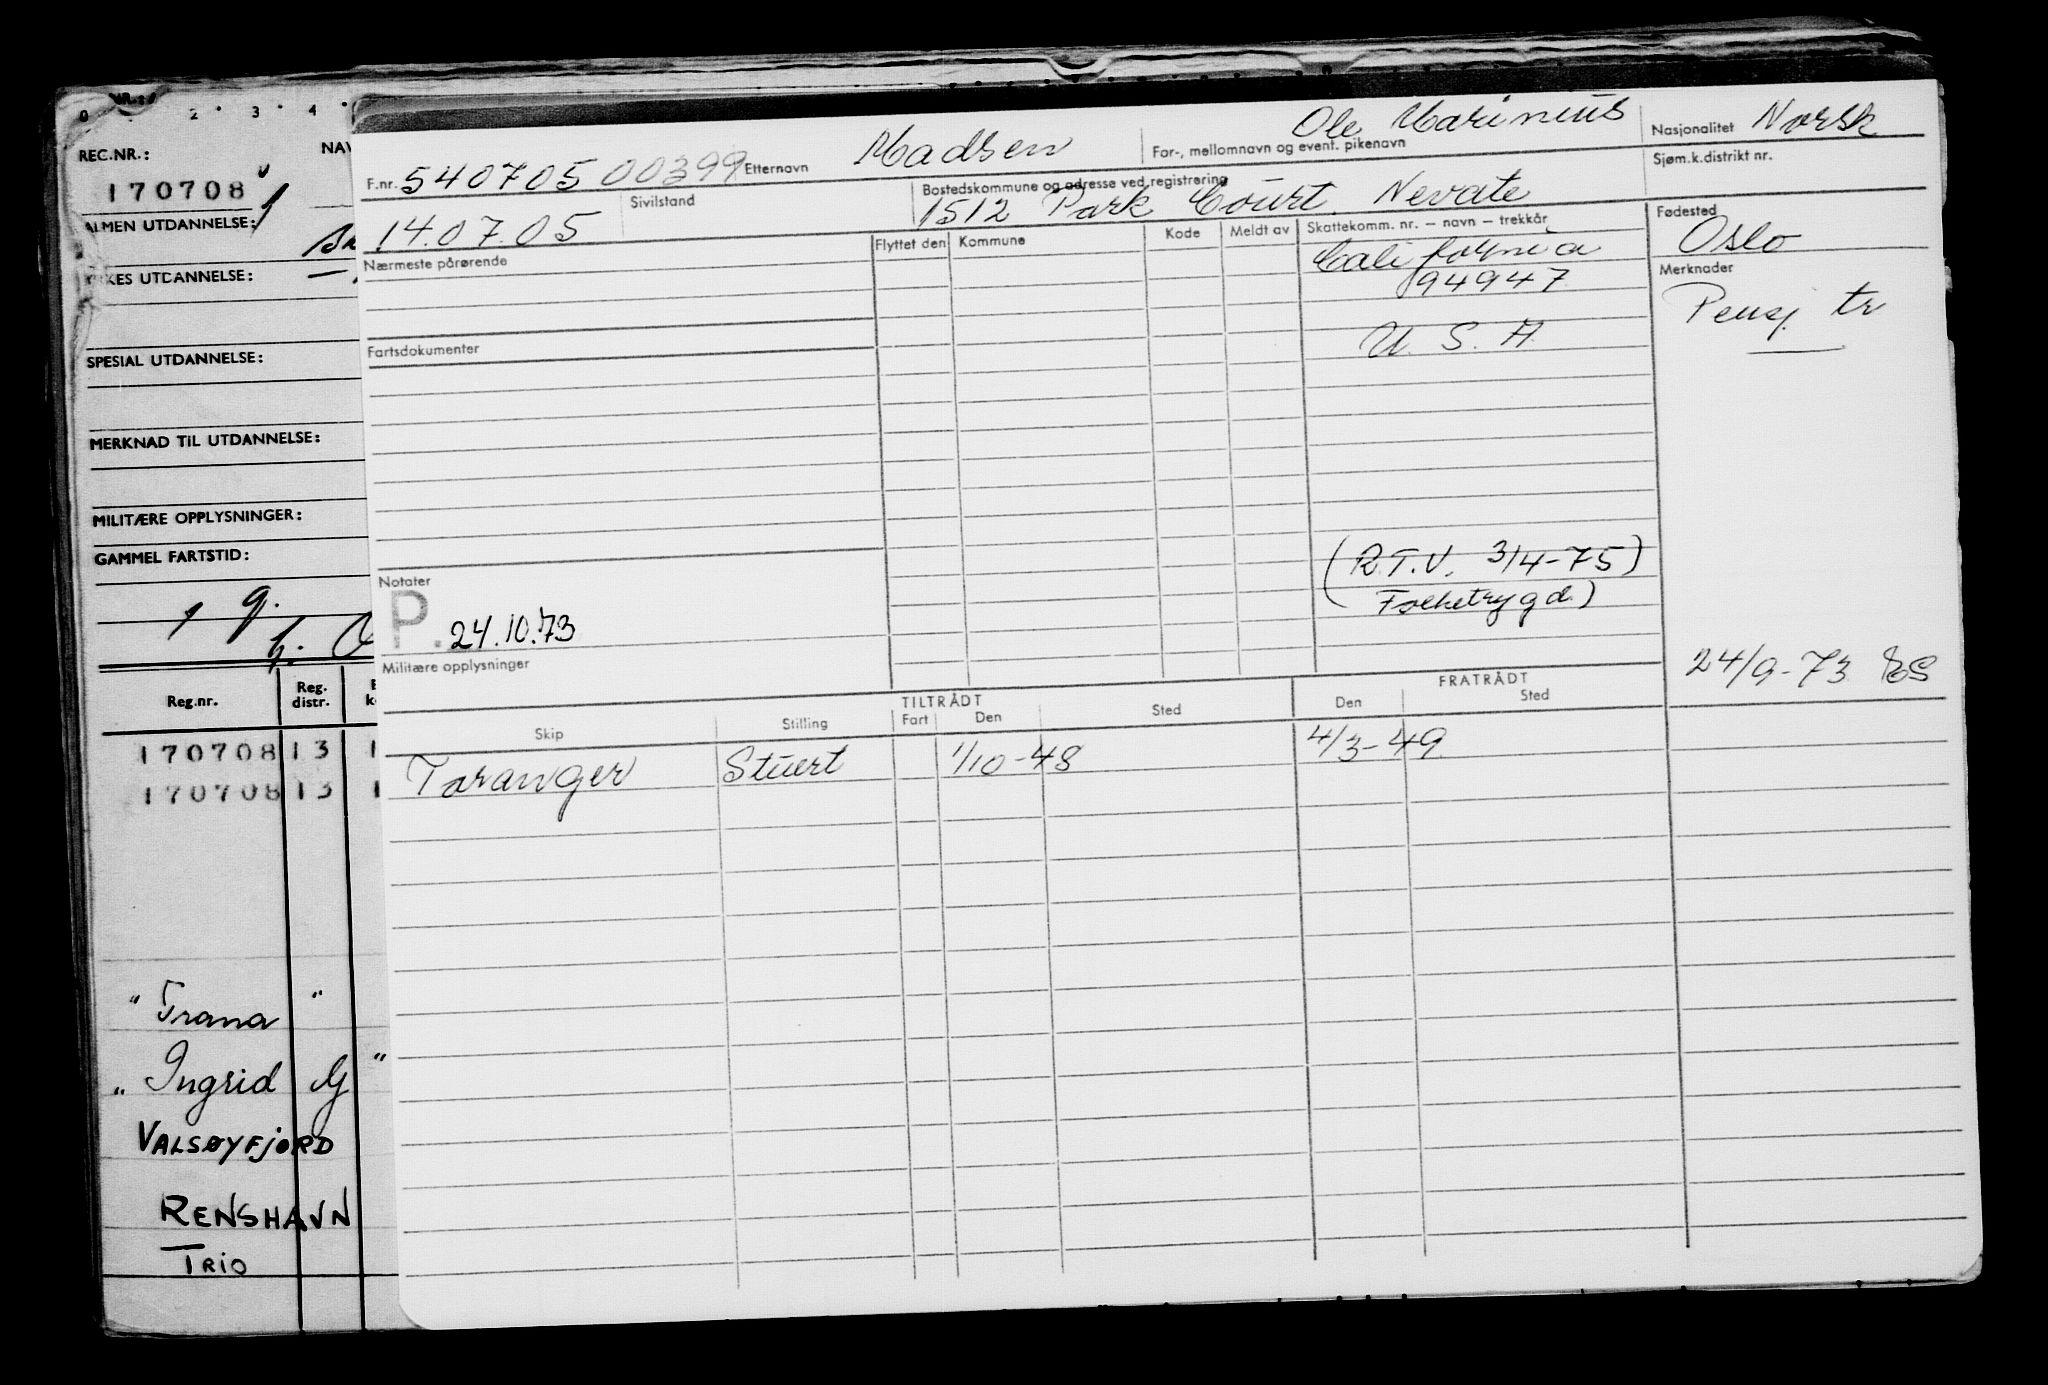 0 2 3 4
REC.NR.:
170708
ALMEN UTDANNELSE:
UTDANNELSE:
SPESIAL UTDANNELSE:
MERKNAD TIL UTDANNELSE:
MILITÆRE OPPLYSNINGER:
GAMMEL FARTSTID:
Reg.nr. Reg. distr.
170708 13 1
170708 13 1
" Trana "
" Ingrid "
VALSØYFJORD
RENSHAVN
TRIO
F.nr. 540705 00399 Etternavn Madsen
For-, mellomnavn og event. pikenavn Ole Marinius
Nasjonalitet Norsk
14.07.05 Sivilstand
Bostedskommune og adresse ved registrering
1512 Park Court Nevate
Sjøm.k.distrikt nr.
Nærmeste pårørende
Flyttet den Kommune Kode Meldt av Skattekomm. nr. – navn – trekkår
California
94947
U. S. A
Fødested
Oslo
Merknader
Pensj. tr
Fartsdokumenter
(R.T.V. 3/4-75)
Folketrygd)
Notater
P. 24.10.73
Militære opplysninger
24/9-73
TILTRÅDT FRATRÅDT
Skip Stilling Fart Den Sted Den Sted
Taranger Stuert 1/10-48 4/3-49